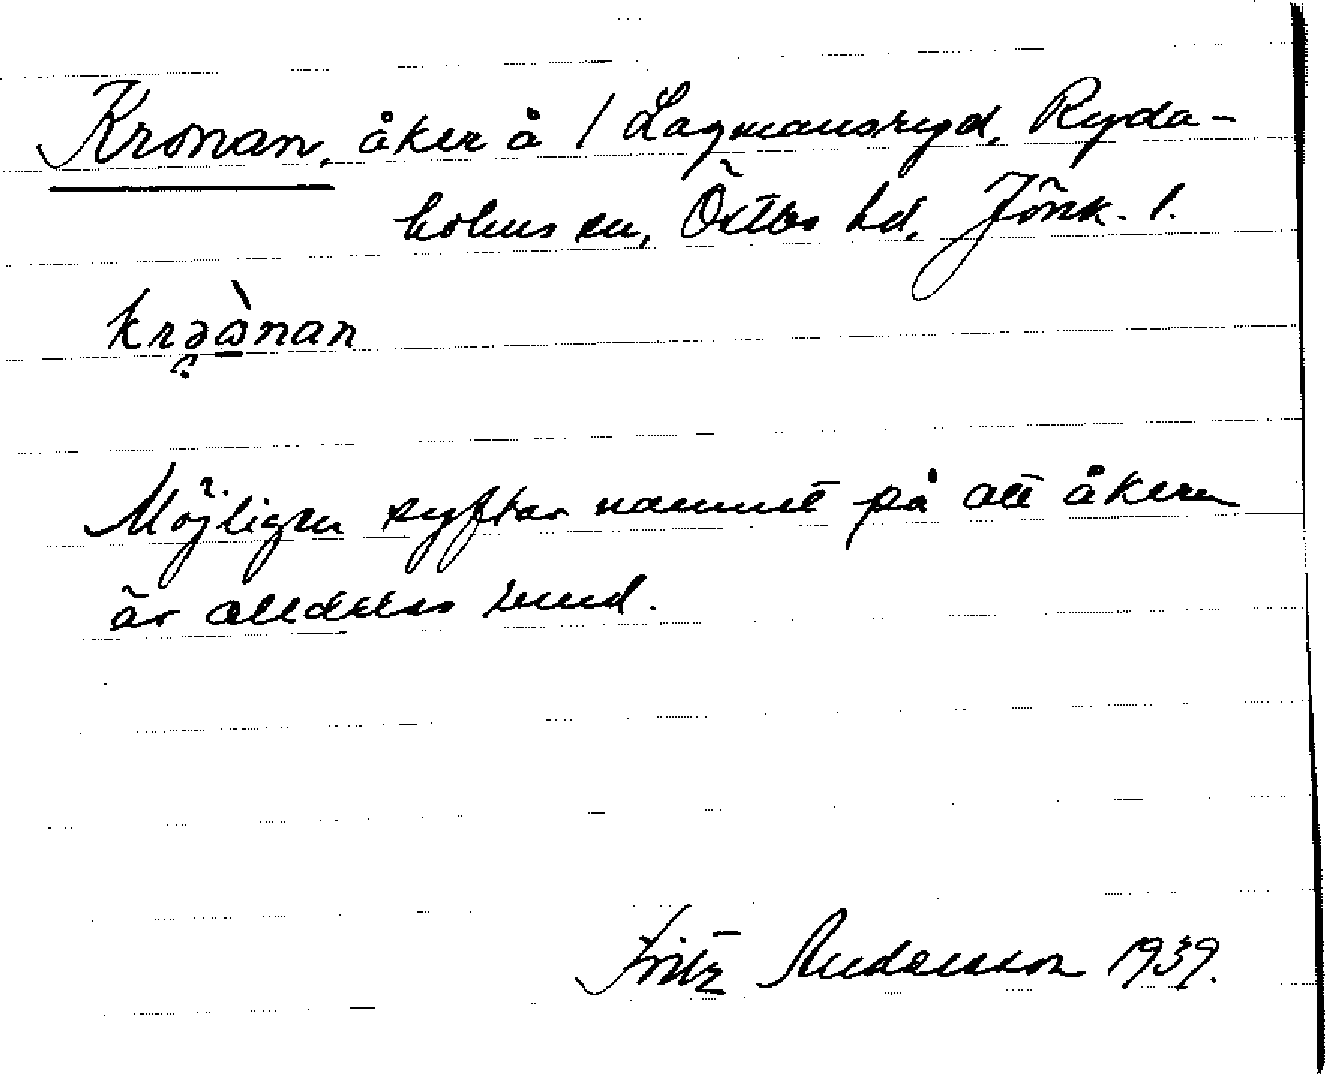 Kronan, åker å / Lagmansryd, Ryda-
holms sn, Östbo hd, Jönk. l.
krə̯ὼnan
Möjligen syftar namnet på att åkern
är alldeles rund.
Fritz Andersson 1939.